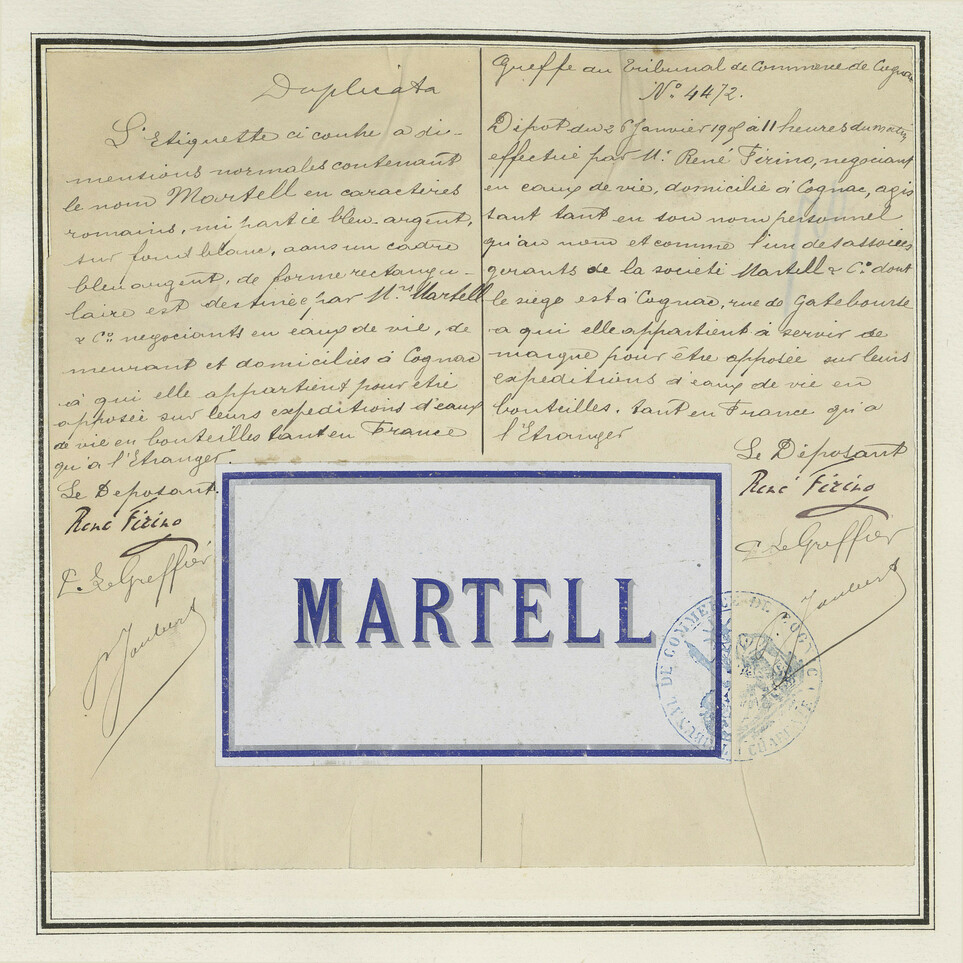 Duplicata
L'Etiquette ci contre a di-
mensions normales contenant
le nom Martell en caractères
romains, mi partie bleu argent,
sur fond blanc, dans un cadre
bleu argent, de forme rectangu-
laire est destinée par Mrs Martell
& Co negociants en eaux de vie, de
meurant et domiciliés à Cognac
à qui elle appartient pour être
apposée sur leurs expeditions d'eaux
de vie en bouteilles tant en France
qu'à l'Etranger.
Le Deposant.
René Firino
P. Le Greffier
Joubert
Greffe du Tribunal de Commerce de Cognac
No 4472.
Dépot du 26 Janvier à 11 heures du matin
effectué par Mr René Firino, negociant
en eaux de vie, domicilié à Cognac, agis
sant tant en son nom personnel
qu'au nom et comme l'un des associés
gerants de la societé Martell & Co dont
le siege est à Cognac, rue de Gatebourse
a qui elle appartient à servir de
marque pour être apposée sur leurs
expeditions d'eaux de vie en
bouteilles. tant en France qu'a
l'Etranger
Le Déposant
René Firino
P. Le Greffier
Joubert
MARTELL
TRIBUNAL DE COMMERCE DE COGNAC